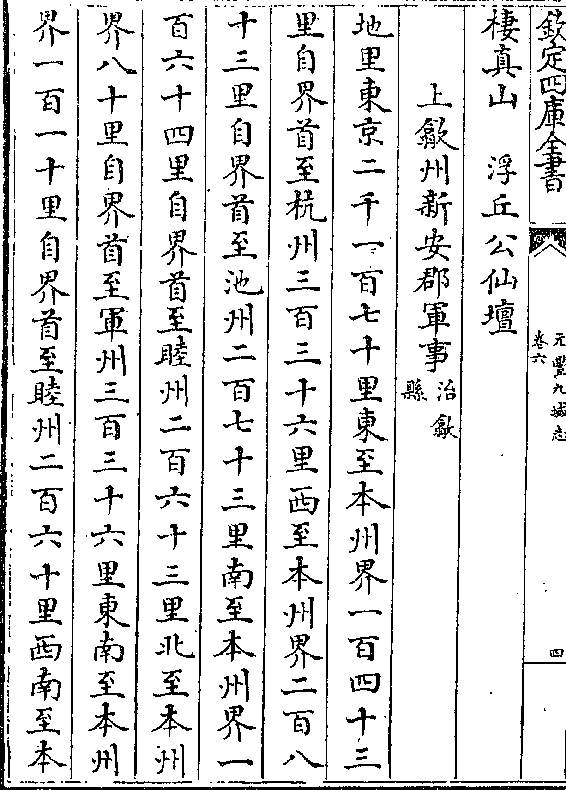 欽定四庫全書
元豐九域志
卷六
四
棲真山　浮丘公仙壇
上歙州新安郡軍事治歙縣
地里東京二千一百七十里東至本州界一百四十三
里自界首至杭州三百三十六里西至本州界二百八
十三里自界首至池州二百七十三里南至本州界一
百六十四里自界首至睦州二百六十三里北至本州
界八十里自界首至軍州三百三十六里東南至本州
界一百一十里自界首至睦州二百六十里西南至本